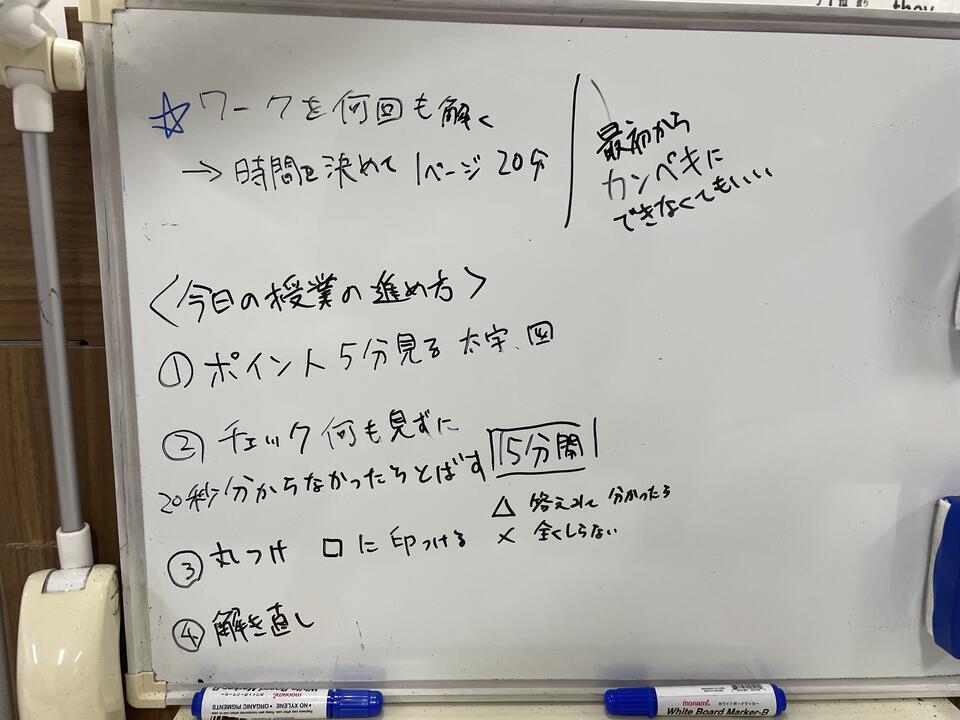 ☆ ワークを何回も解く
→ 時間を決めて 1ページ 20分
最初から
カンペキに
できなくてもいい
〈今日の授業の進め方〉
① ポイント 5分見る 太字、図
② チェック 何も見ずに
20秒分からなかったらとばす 15分間
△ 答えみて 分かったら
③ 丸つけ □に印つける × 全くしらない
④ 解き直し
monami
White Board Marker-B
• NO XYLENE • ORGANIC PIGMENTS
monami
ホワイトボードマーカー
White Board Marker-B
they